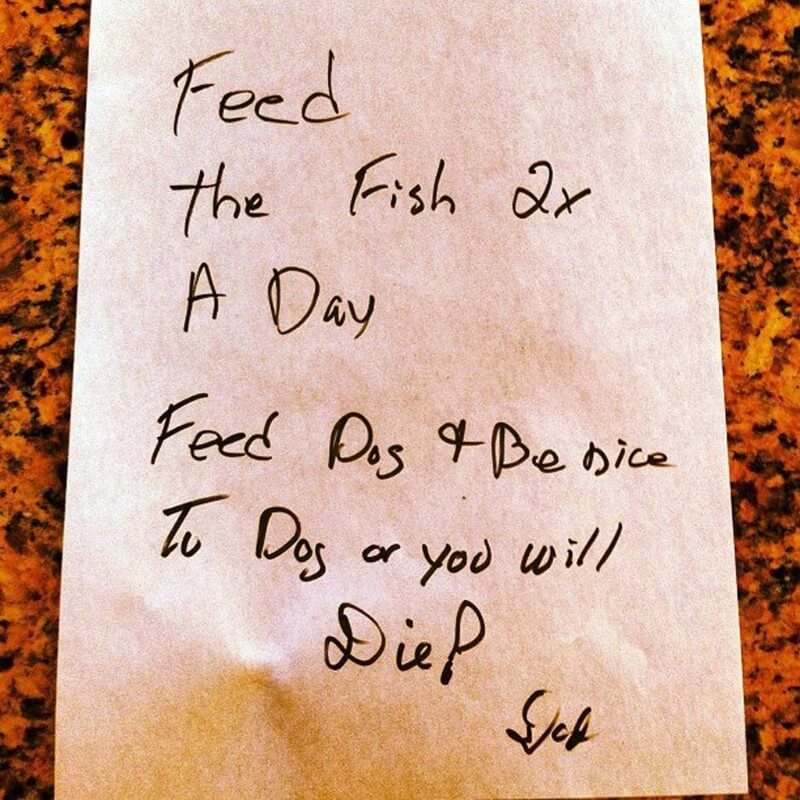 Feed
the Fish 2x
A Day
Feed Dog & Be nice
To Dog or you will
Die!